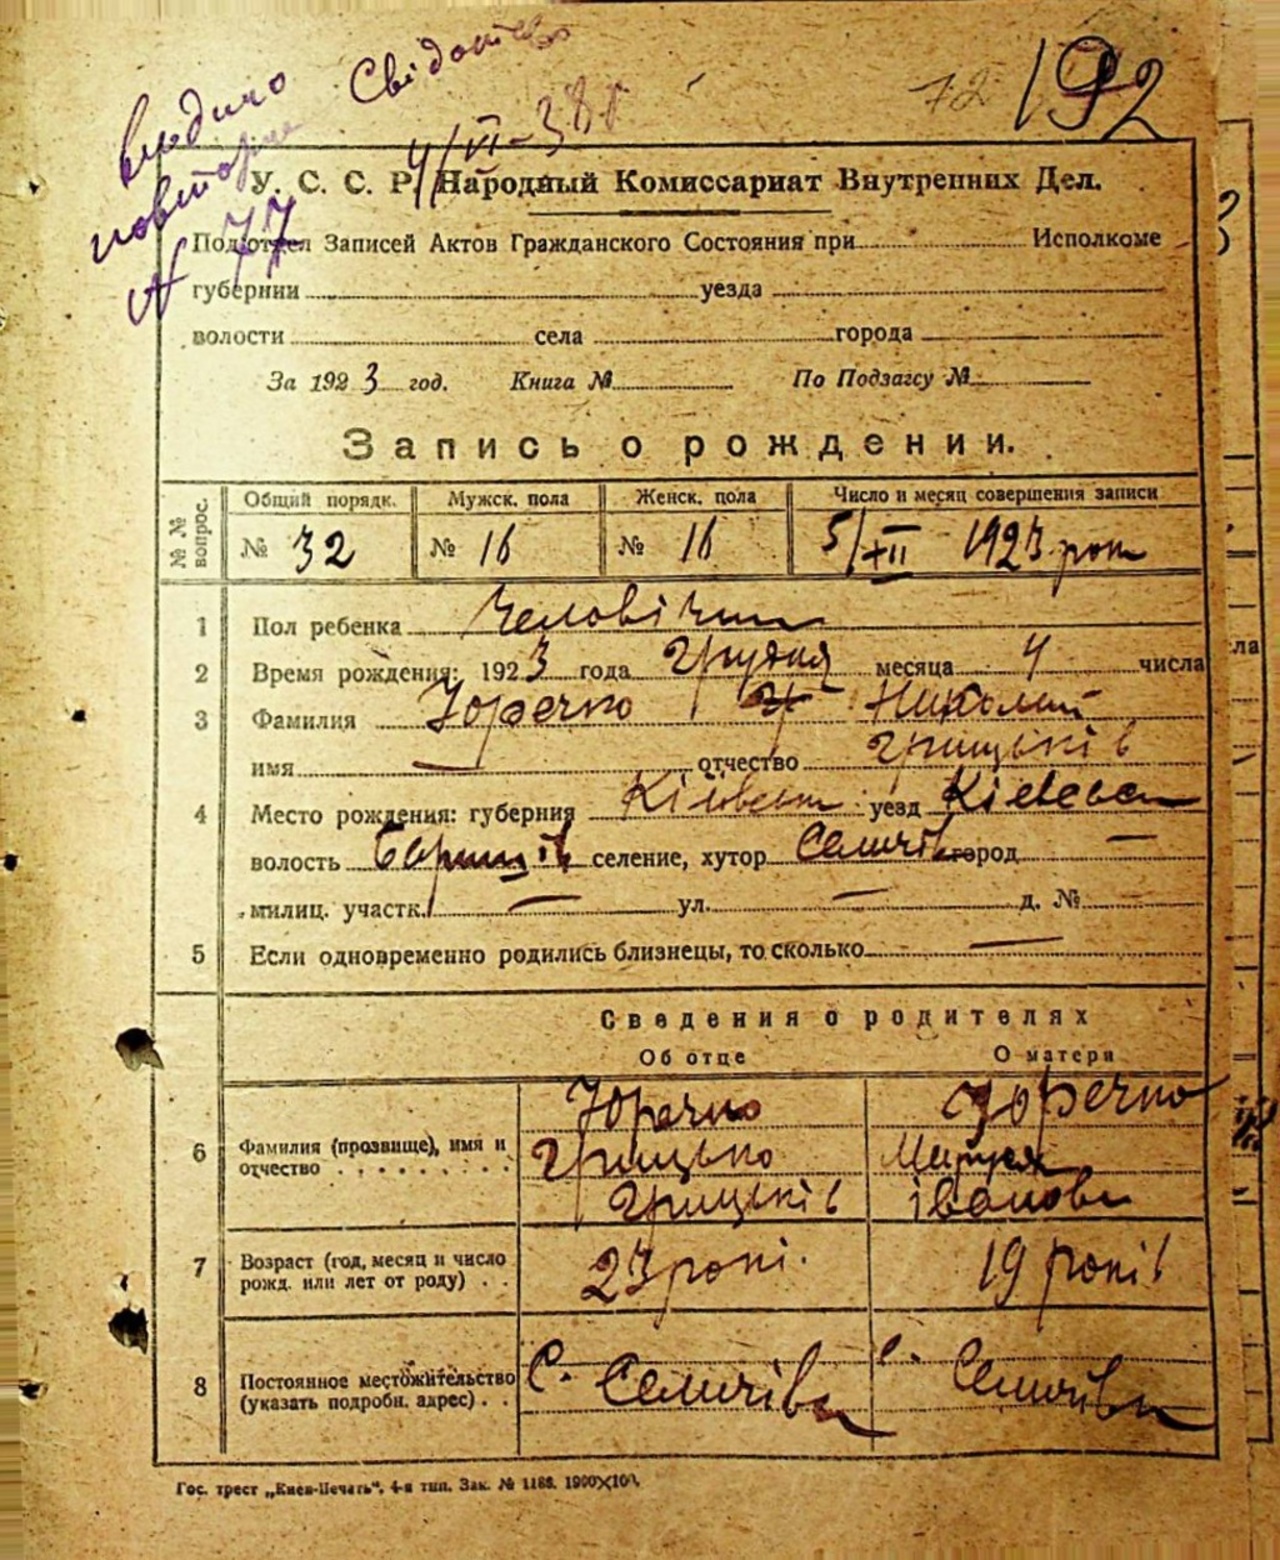 видано
Свідоцтво
повторне
4/VI-38 г
№ 77
72 192
У. С. С. Р. Народный Комиссариат Внутренних Дел.
Подотдел Записей Актов Гражданского Состояния при Исполкоме
губернии уезда
волости села города
За 1923 год. Книга № По Подзагсу №
Запись о рождении.
№ № вопрос.
Общий порядк. Мужск. пола Женск. пола Число и месяц совершения записи
№ 32 № 16 № 16 5/XII 1923 рок
1 Пол ребенка Человічий
2 Время рождения: 1923 года Грудня месяца 4 числа
3 Фамилия Юречко Николай
имя — отчество Грицьків
4 Место рождения: губерния Київська уезд Київськ
волость селение, хутор город —
милиц. участк. — ул. — д. №
5 Если одновременно родились близнецы, то сколько —
Сведения о родителях
Об отце О матери
6 Фамилия (прозвище), имя и отчество
Юречко Юречко
Грицько Маруся
Грицьків Іванова
7 Возраст (год, месяц и число рожд. или лет от роду) 23 рокі. 19 років
8 Постоянное местожительство (указать подробн. адрес) с.
с.
Гос. трест „Киев-Печать“, 4-я тип. Зак. № 1186. 1900×100.